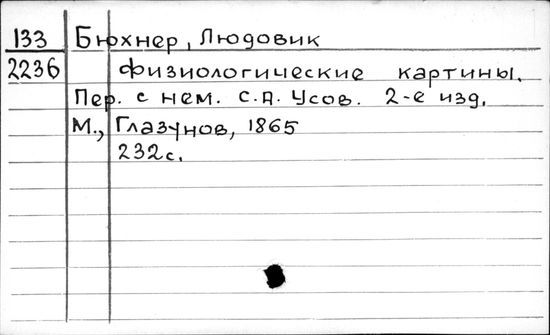 133 Бюхнер, Людовик
2236 Физиологические картины.
Пер. с нем. С.А. Усов. 2-е изд.
М., Глазунов, 1865
232с.